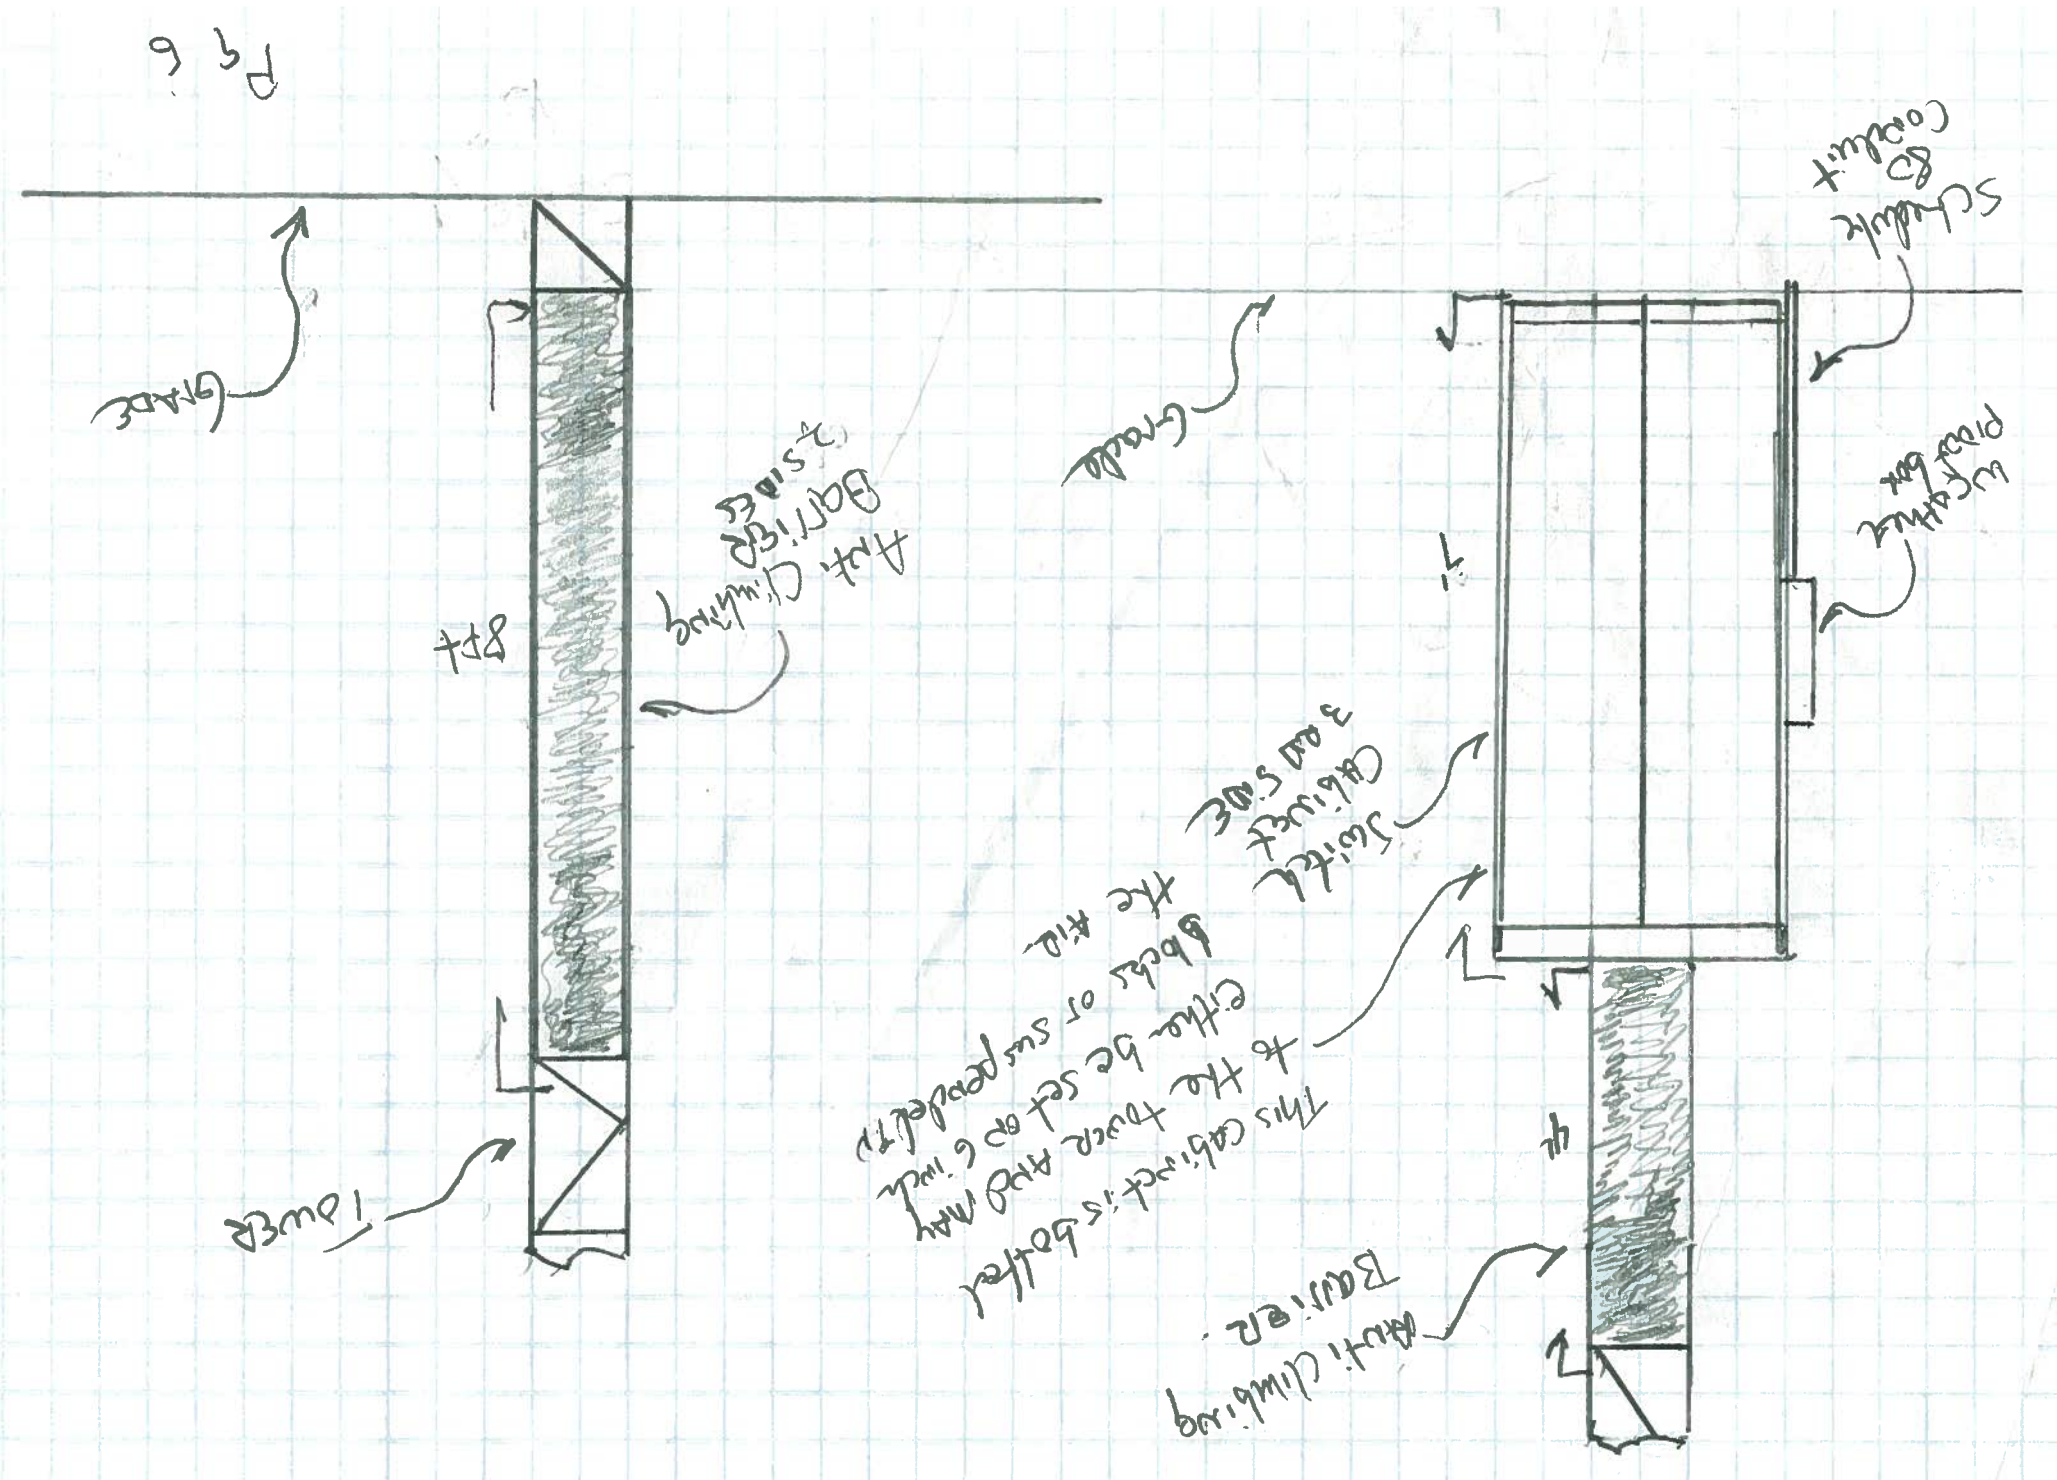 Anti Climbing
BarriER
This cabinet is boltted
to the tower AND MAY
either be set on 6 inch
blocks or suspended IN
the AiR
Switch
CabiNet
3 RD SiDE
Weather
proof box
Schedule
80
Conduit
Grade
TOWER
8ft
Anti Climbing
BarriER
2 SIDES
GRADE
Pg 6